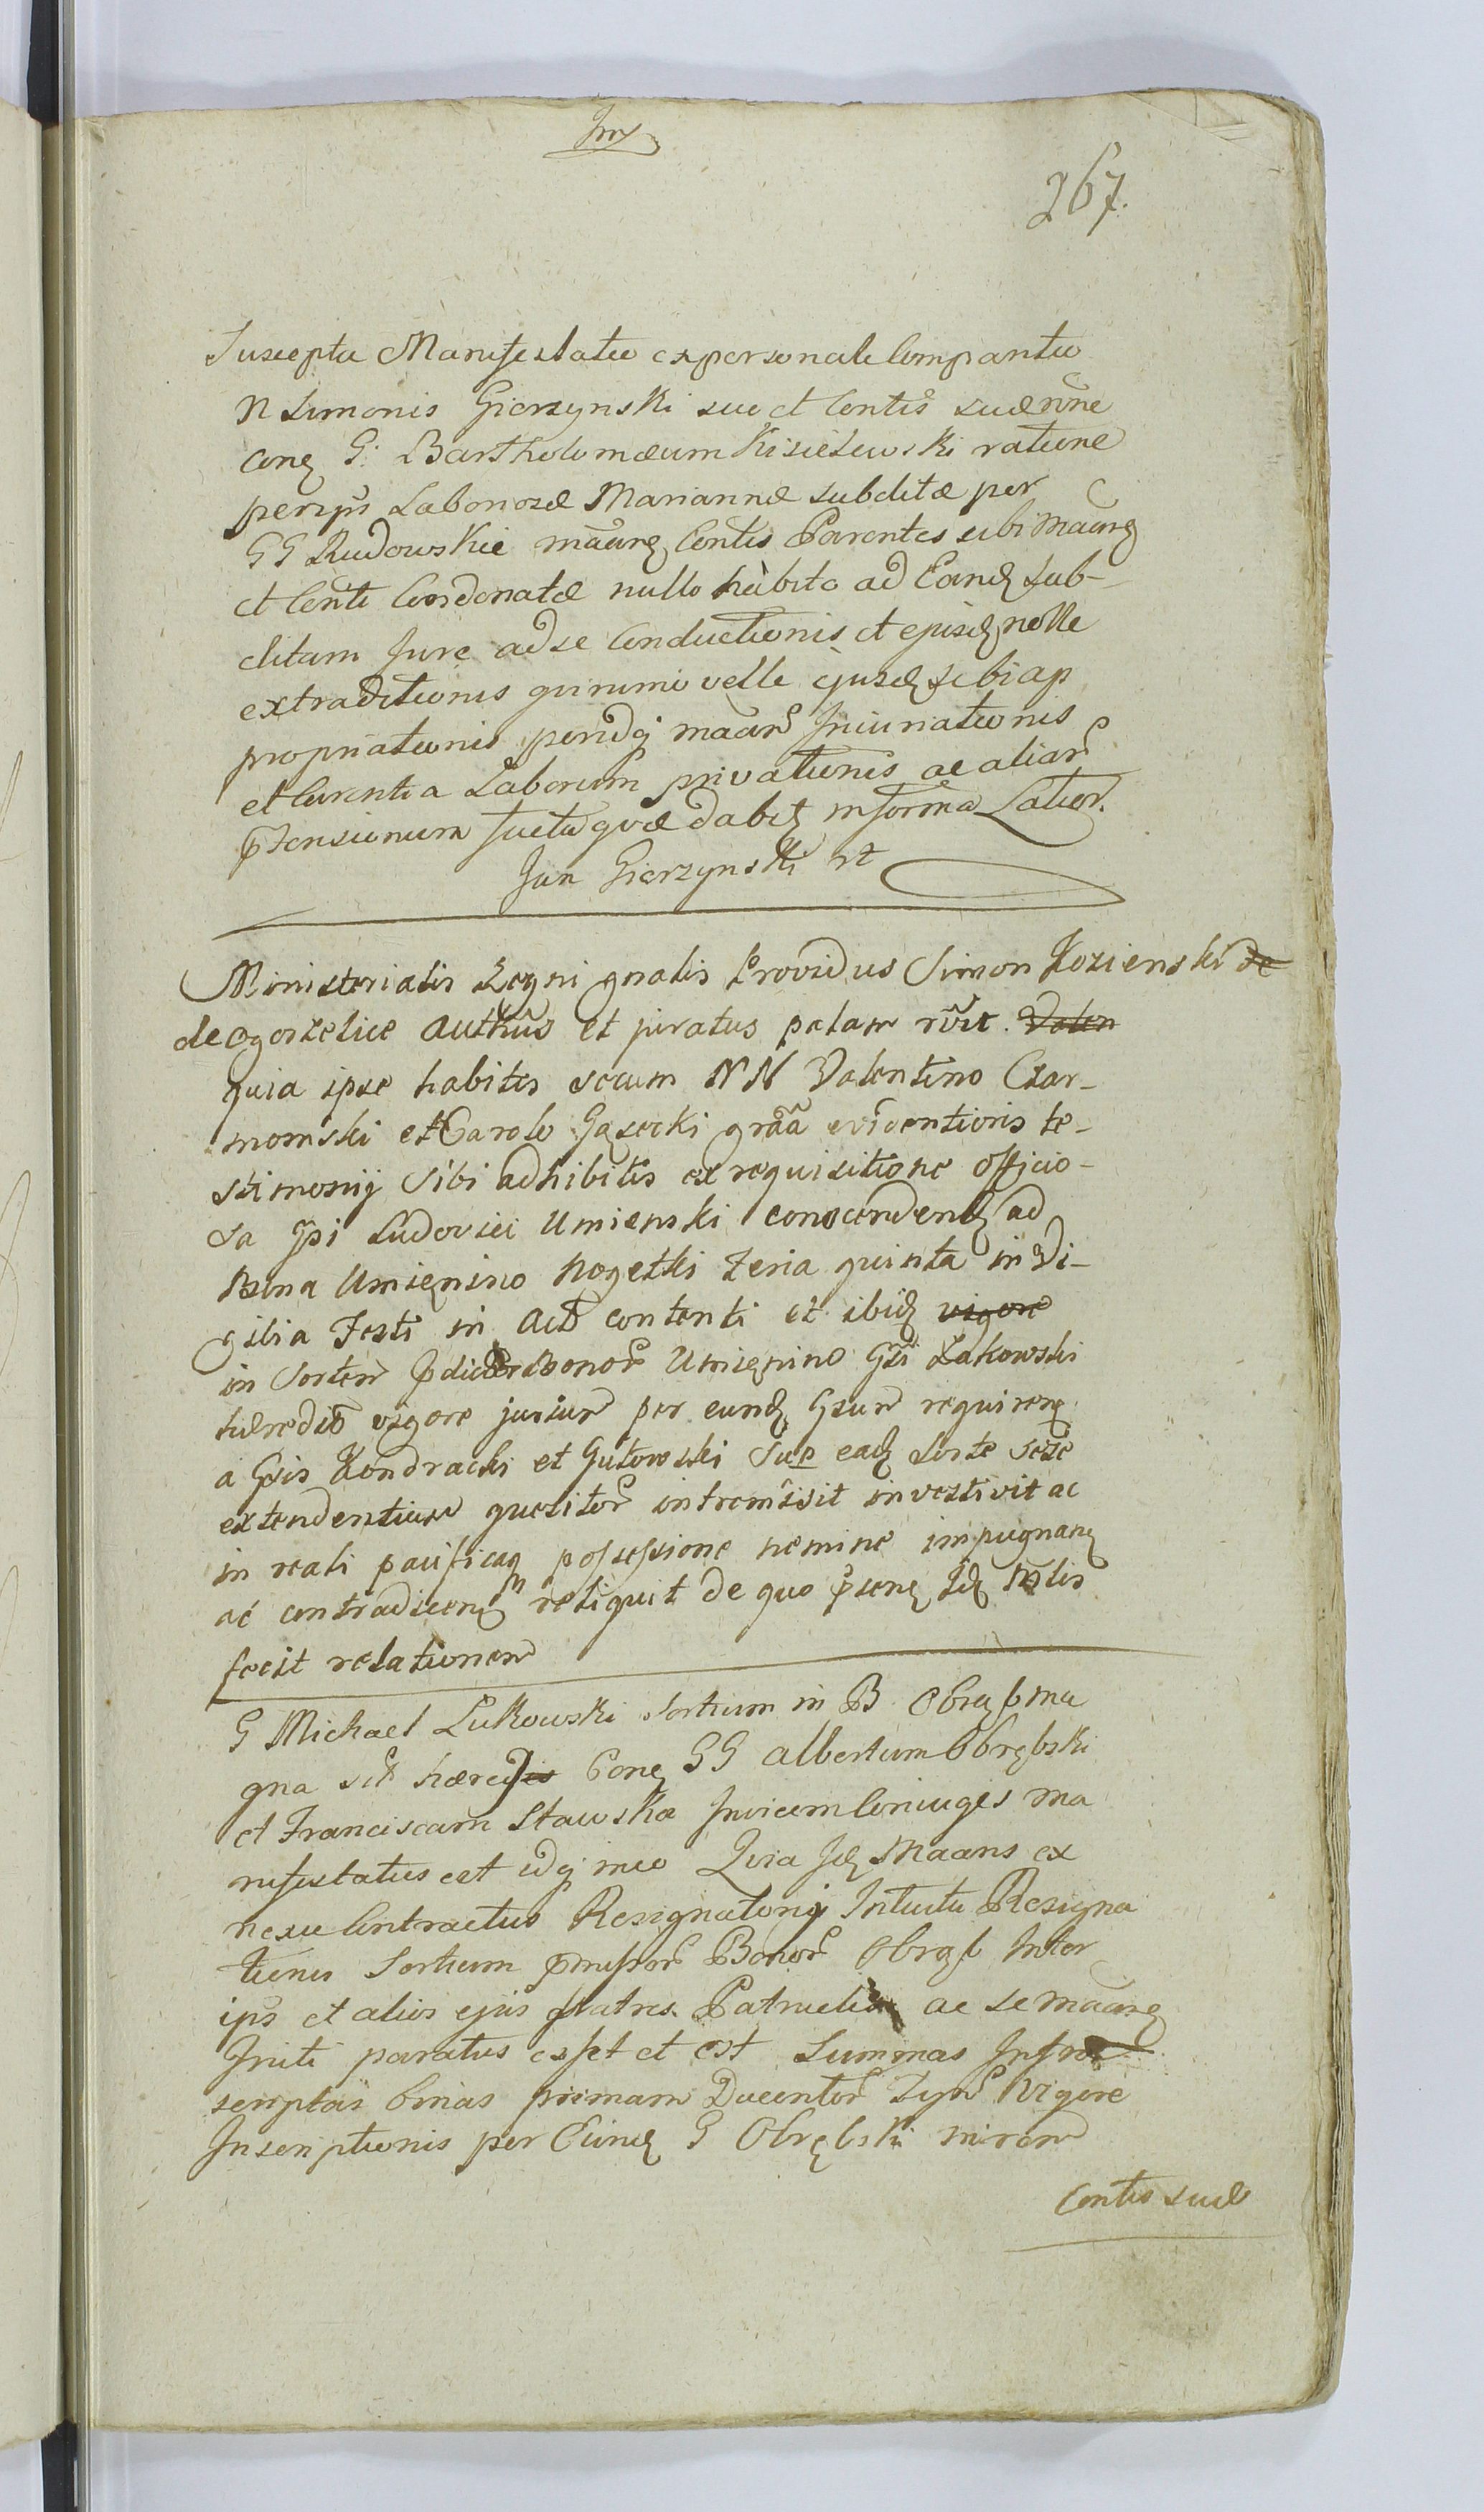 367.
Suscepta Manifestatio ex personali Compantio
N Simonis Gierzynski suo et Contis suæ nõne
conq G: Bartholomæum Kisielewski ratione
per ips Laboriosæ Mariannæ subditæ per
GG Rudowskie mãanq Contis Parentes sibi mãanq
et Conti Coordonatæ nullo habito ad Eandq Sub-
ditam Jure ad se Conductionis et ejusdq nolle
extraditionis qui nimio velle ejusdq sibi ap
propriationis peridq maãr Iniuriationis
et Carentia Laborum privationis ac aliar
ptensionum factu quæ dabitq in forma Latior.
Jan Gierzynski
Ministerialis Regni gnalis Providus Simon Kozienski de
de Ogorzelice Authus et juratus palam rvit. Valen
quia ipse habitis secum NN Valentino Czar-
momski et Carolo Gąsecki graã evidentioris te-
stimonij Sibi adhibitis ex requisitione officio-
sa Gsi Ludovici Umienski conscendendq ad
Bona Umienino Rogetki Feria quinta in Vi-
gilia Festi in Actu contenti et ibidq vigore
in Sortem pdictor Bonor Umienino Gsi Zakowski
hæredis vigore jurium per eundq Gsum requirenq
a Gsis Kondracki et Gutowski Sup eadq Sorte sese
extendentium quesitor intromisit investivit ac
in reali pacificaq possessione nemine impugnanq
ac contradicenq reliquit de quo psenq idq Mlis
fecit relationem
G Michael Lukowski Sortium in B Obręb ma
gna sit hæres Conq GG Albertum Obrębski
et Franciscam Stawska Invicem Coniuges ma
nifestatus est idq inio Quia Idq Maans ex
nexu Contractus Resignatorij Intuitu Resigna
tionis Sortium pmissor Bonor Obręb Inter
ips et alios ejus fratres Patrueles ac se mãanq
Initi paratus esset et est Summas Infra
scriptas binas primam Ducentor Tynf Vigore
Inscriptionis per Eundq G Obrębski in rem
Contis suæ